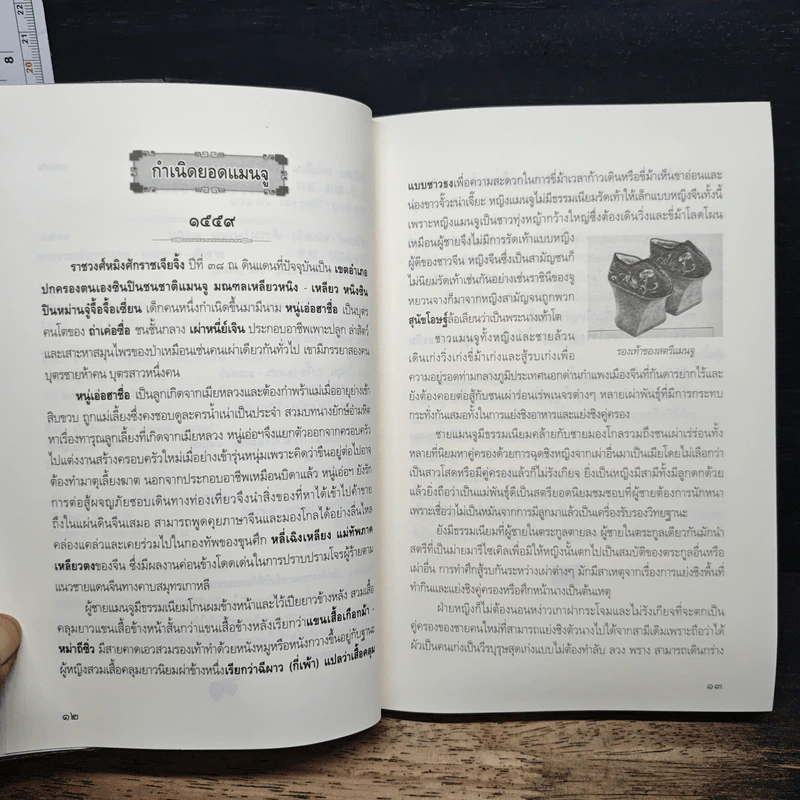 กำเนิดยอดแมนจู
๑๕๕๙
ราชวงศ์หมิงศักราชเจียจิ้ง ปีที่ ๓๘ ณ ดินแดนที่ปัจจุบันเป็น เขตอำเภอ
ปกครองตนเองซินปินชนชาติแมนจู มณฑลเหลียวหนิง - เหลียว หนิงซิน
ปินหม่านจู๋จื้อจื้อเซี่ยน เด็กคนหนึ่งกำเนิดขึ้นมามีนาม หนู่เอ่อฮาชื่อ เป็นบุตร
คนโตของ ถ่าเค่อซื่อ ชนชั้นกลาง เผ่าหนี่ย์เจิน ประกอบอาชีพเพาะปลูก ล่าสัตว์
และเสาะหาสมุนไพรของป่าเหมือนเช่นคนเผ่าเดียวกันทั่วไป เขามีภรรยาสองคน
บุตรชายห้าคน บุตรสาวหนึ่งคน
หนู่เอ่อฮาชื่อ เป็นลูกเกิดจากเมียหลวงและต้องกำพร้าแม่เมื่ออายุย่างเข้า
สิบขวบ ถูกแม่เลี้ยงซึ่งคงชอบดูละครน้ำเน่าเป็นประจำ สวมบทนางยักษ์อำมหิต
หาเรื่องทารุณลูกเลี้ยงที่เกิดจากเมียหลวง หนู่เอ่อฯจึงแยกตัวออกจากครอบครัว
ไปแต่งงานสร้างครอบครัวใหม่เมื่อย่างเข้ารุ่นหนุ่มเพราะคิดว่าขืนอยู่ต่อไปอาจ
ต้องทำมาตุเลี้ยงฆาต นอกจากประกอบอาชีพเหมือนบิดาแล้ว หนู่เอ่อฯ ยังรัก
การต่อสู้ผจญภัยชอบเดินทางท่องเที่ยวจึงนำสิ่งของที่หาได้เข้าไปค้าขาย
ถึงในแผ่นดินจีนเสมอ สามารถพูดคุยภาษาจีนและมองโกลได้อย่างลื่นไหล
คล่องแคล่วและเคยร่วมไปในกองทัพของขุนศึก หลี่เฉิงเหลียง แม่ทัพภาค
เหลียวตง ของจีน ซึ่งมีผลงานค่อนข้างโดดเด่นในการปราบปรามโจรผู้ร้ายตาม
แนวชายแดนจีนทางคาบสมุทรเกาหลี
ผู้ชายแมนจูมีธรรมเนียมโกนผมข้างหน้าและไว้เปียยาวข้างหลัง สวมเสื้อ
คลุมยาวแขนเสื้อข้างหน้าสั้นกว่าแขนเสื้อข้างหลังเรียกว่าแขนเสื้อเกือกม้า -
หม่าถีซิ่ว มีสายคาดเอวสวมรองเท้าทำด้วยหนังหมูหรือหนังกวางขึ้นอยู่กับฐานะ
ผู้หญิงสวมเสื้อคลุมยาวนิยมผ่าข้างหนึ่งเรียกว่าฉีผาว (กี่เพ้า) แปลว่าเสื้อคลุม
๑๒
แบบชาวธงเพื่อความสะดวกในการขี่ม้าเวลาก้าวเดินหรือขี่ม้าเห็นขาอ่อนและ
น่องขาวจั๊วะน่าเจี๊ยะ หญิงแมนจูไม่มีธรรมเนียมรัดเท้าให้เล็กแบบหญิงจีนทั้งนี้
เพราะหญิงแมนจูเป็นชาวทุ่งหญ้ากว้างใหญ่ซึ่งต้องเดินวิ่งและขี่ม้าโลดโผน
เหมือนผู้ชายจึงไม่มีการรัดเท้าแบบหญิง
ผู้ดีของชาวจีน หญิงจีนซึ่งเป็นสามัญชนก็
ไม่นิยมรัดเท้าเช่นกันอย่างเช่นราชินีของจู
หยวนจางก็มาจากหญิงสามัญจนถูกพวก
สุนัขโอษฐ์ล้อเลียนว่าเป็นพระนางเท้าโต
รองเท้าของสตรีแมนจู
ชาวแมนจูทั้งหญิงและชายล้วน
เดินเก่งวิ่งเก่งขี่ม้าเก่งและสู้รบเก่งเพื่อ
ความอยู่รอดท่ามกลางภูมิประเทศนอกด่านกำแพงเมืองจีนที่กันดารยากไร้และ
ยังต้องคอยต่อสู้กับชนเผ่าร่อนเร่พเนจรต่างๆ หลายเผ่าพันธุ์ที่มีการกระทบ
กระทั่งกันเสมอทั้งในการแย่งชิงอาหารและแย่งชิงคู่ครอง
ชายแมนจูมีธรรมเนียมคล้ายกับชายมองโกลรวมถึงชนเผ่าเร่ร่อนทั้ง
หลายที่นิยมหาคู่ครองด้วยการฉุดชิงหญิงจากเผ่าอื่นมาเป็นเมียโดยไม่เลือกว่า
เป็นสาวโสดหรือมีคู่ครองแล้วก็ไม่รังเกียจ ยิ่งเป็นหญิงมีสามีทั้งมีลูกดกด้วย
แล้วยิ่งถือว่าเป็นแม่พันธุ์ดีเป็นสตรียอดนิยมชมชอบที่ผู้ชายต้องการนักหนา
เพราะเชื่อว่าไม่เป็นหมันจากการมีลูกมาแล้วเป็นเครื่องรับรองวิทยฐานะ
ยังมีธรรมเนียมที่ผู้ชายในตระกูลตายลง ผู้ชายในตระกูลเดียวกันมักนำ
สตรีที่เป็นม่ายมารีไซเคิลเพื่อมิให้หญิงนั้นตกไปเป็นสมบัติของตระกูลอื่นหรือ
เผ่าอื่น การทำศึกสู้รบกันระหว่างเผ่าต่างๆ มักมีสาเหตุจากเรื่องการแย่งชิงพื้นที่
ทำกินและแย่งชิงคู่ครองหรือศึกหน้านางเป็นต้นเหตุ
ฝ่ายหญิงก็ไม่ต้องนอนหง่าวเกาฝากระโจมและไม่รังเกียจที่จะตกเป็น
คู่ครองของชายคนใหม่ที่สามารถแย่งชิงตัวนางไปได้จากสามีเดิมเพราะถือว่าได้
ผัวเป็นคนเก่งเป็นวีรบุรุษสุดเก่งแบบไม่ต้องทำลับ ลวง พราง สามารถเดินกร่าง
๑๓